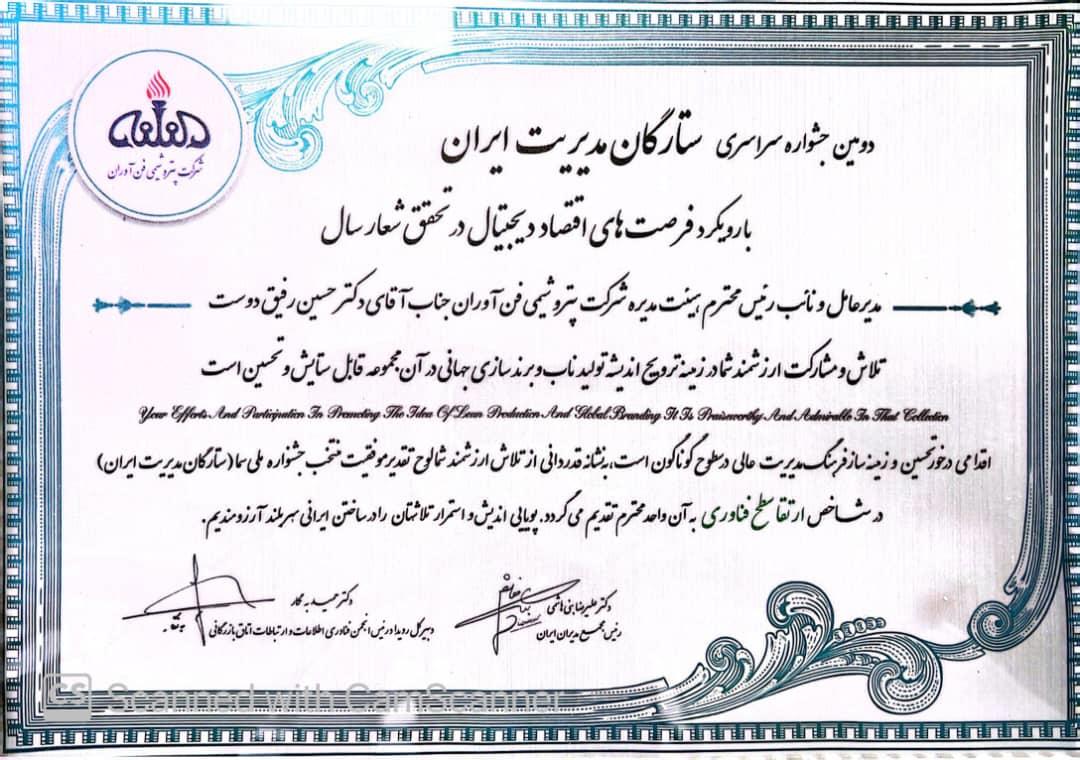 شرکت پتروشیمی فن آوران
دومین جشنواره سراسری ستارگان مدیریت ایران
با رویکرد فرصت های اقتصاد دیجیتال در تحقق شعار سال
مدیرعامل و نائب رئیس محترم هیئت مدیره شرکت پتروشیمی فن آوران جناب آقای دکتر حسین رفیق دوست
تلاش و مشارکت ارزشمند شما در زمینه ترویج اندیشه تولید ناب و برند سازی جهانی در آن مجموعه قابل ستایش و تحسین است
Your Efforts And Participation In Promoting The Idea Of Lean Production And Global Branding It Is Praiseworthy And Admirable In That Collection
اقدامی درخور تحسین و زمینه ساز فرهنگ مدیریت عالی در سطوح گوناگون است، به نشانه قدردانی از تلاش ارزشمند شما لوح تقدیر موفقیت منتخب جشنواره ملی سما (ستارگان مدیریت ایران)
در شاخص ارتقا سطح فناوری به آن واحد محترم تقدیم می گردد. پویایی اندیش و استمرار تلاشتان را در ساختن ایرانی سربلند آرزومندیم.
دکتر علیرضا بنی هاشمی
رئیس مجمع مدیران ایران
دکتر حمید به کار
دبیر کل رویداد رئیس انجمن فناوری اطلاعات و ارتباطات اتاق بازرگانی
CS Scanned with CamScanner